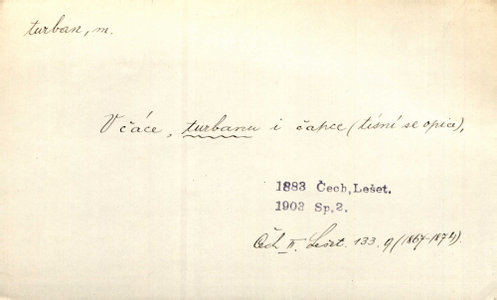 turban, m.
V čáce, turbanu i čapce (tísní se opice),
1883 Čech, Lešet.
1903 Sp.2.
Čch II. Lešet. 133. 9 (1867-1874).